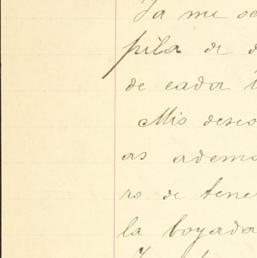 Ya me se
pila de d
de cada
Mis deseo
as adema
ro de tene
la boyada